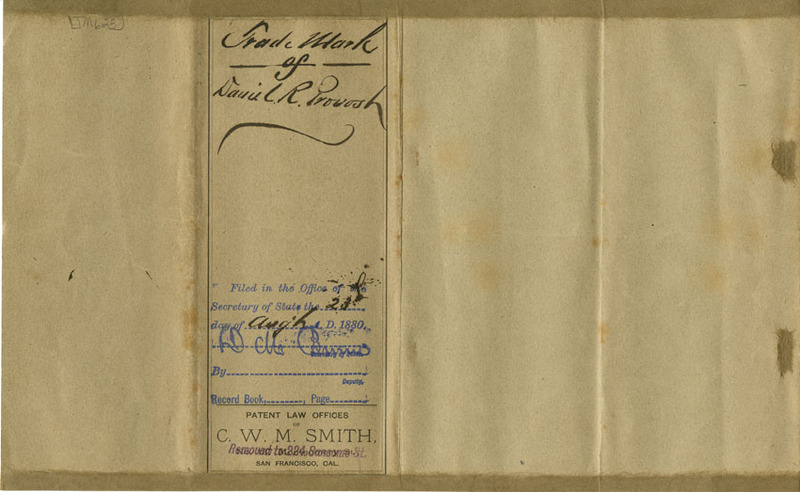 [TM623]
Trade Mark
of
Daniel. R. Provost
Filed in the Office of the
Secretary of State the 23d
day of Aug't A. D. 1880.
D M Burns
By
Deputy.
Record Book, Page
PATENT LAW OFFICES
OF
C. W. M. SMITH,
Removed to 224 Sansome St.
SAN FRANCISCO, CAL.